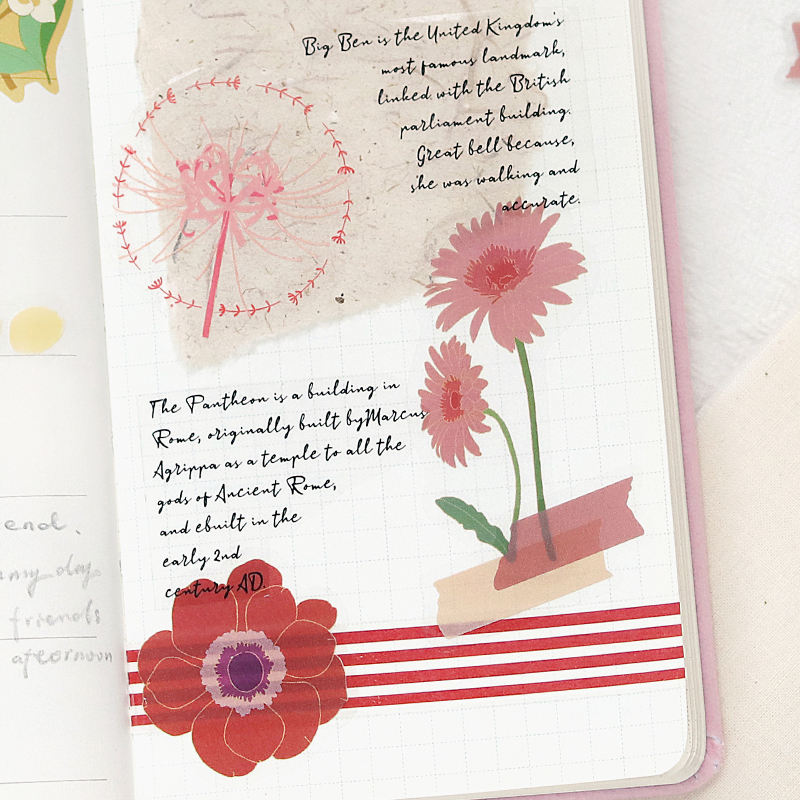 Big Ben is the United Kingdom's
most famous landmark,
linked with the British
parliament building.
Great bell because,
she was walking and
accurate.
The Pantheon is a building in
Rome, originally built byMarcus
Agrippa as a temple to all the
gods of Ancient Rome,
and ebuilt in the
early 2nd
century AD.
end.
my day
friends
afternoon